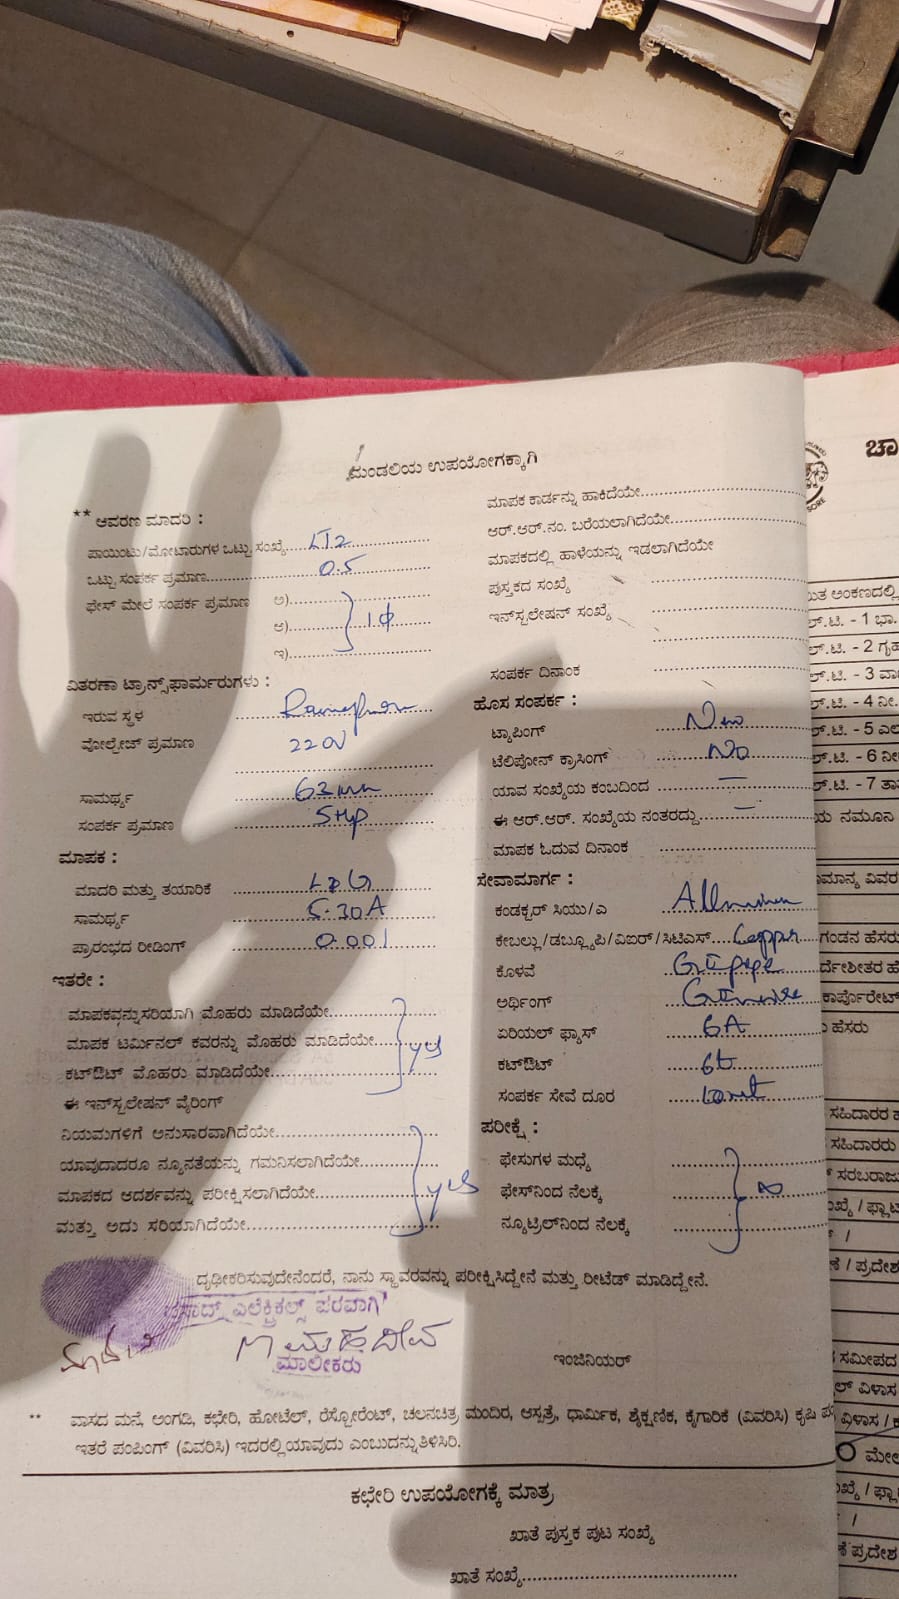 ಮಂಡಲಿಯ ಉಪಯೋಗಕ್ಕಾಗಿ
** ಆವರಣ ಮಾದರಿ :
ಪಾಯಿಂಟು/ಮೋಟಾರುಗಳ ಒಟ್ಟು ಸಂಖ್ಯೆ.... LT2
ಒಟ್ಟು ಸಂಪರ್ಕ ಪ್ರಮಾಣ.... 0.5
ಫೇಸ್ ಮೇಲೆ ಸಂಪರ್ಕ ಪ್ರಮಾಣ ಅ)....
ಆ).... 1ϕ
ಇ)....
ವಿತರಣಾ ಟ್ರಾನ್ಸ್‌ಫಾರ್ಮರುಗಳು :
ಇರುವ ಸ್ಥಳ
ವೋಲ್ಟೇಜ್ ಪ್ರಮಾಣ 220V
ಸಾಮರ್ಥ್ಯ 63
ಸಂಪರ್ಕ ಪ್ರಮಾಣ 5HP
ಮಾಪಕ :
ಮಾದರಿ ಮತ್ತು ತಯಾರಿಕೆ L&G
ಸಾಮರ್ಥ್ಯ 5-30A
ಪ್ರಾರಂಭದ ರೀಡಿಂಗ್ 0.001
ಇತರೇ :
ಮಾಪಕವನ್ನು ಸರಿಯಾಗಿ ಮೊಹರು ಮಾಡಿದೆಯೇ....
ಮಾಪಕ ಟರ್ಮಿನಲ್ ಕವರನ್ನು ಮೊಹರು ಮಾಡಿದೆಯೇ.... yes
ಕಟ್‌ಔಟ್ ಮೊಹರು ಮಾಡಿದೆಯೇ....
ಈ ಇನ್‌ಸ್ಟಲೇಷನ್ ವೈರಿಂಗ್
ನಿಯಮಗಳಿಗೆ ಅನುಸಾರವಾಗಿದೆಯೇ....
ಯಾವುದಾದರೂ ನ್ಯೂನತೆಯನ್ನು ಗಮನಿಸಲಾಗಿದೆಯೇ....
ಮಾಪಕದ ಆದರ್ಶವನ್ನು ಪರೀಕ್ಷಿಸಲಾಗಿದೆಯೇ.... yes
ಮತ್ತು ಅದು ಸರಿಯಾಗಿದೆಯೇ....
ಮಾಪಕ ಕಾರ್ಡನ್ನು ಹಾಕಿದೆಯೇ....
ಆರ್.ಆರ್.ನಂ. ಬರೆಯಲಾಗಿದೆಯೇ....
ಮಾಪಕದಲ್ಲಿ ಹಾಳೆಯನ್ನು ಇಡಲಾಗಿದೆಯೇ
ಪುಸ್ತಕದ ಸಂಖ್ಯೆ
ಇನ್‌ಸ್ಟಲೇಷನ್ ಸಂಖ್ಯೆ
ಸಂಪರ್ಕ ದಿನಾಂಕ
ಹೊಸ ಸಂಪರ್ಕ :
ಟ್ಯಾಪಿಂಗ್ New
ಟೆಲಿಪೋನ್ ಕ್ರಾಸಿಂಗ್ No
ಯಾವ ಸಂಖ್ಯೆಯ ಕಂಬದಿಂದ —
ಈ ಆರ್.ಆರ್. ಸಂಖ್ಯೆಯ ನಂತರದ್ದು.... —
ಮಾಪಕ ಓದುವ ದಿನಾಂಕ
ಸೇವಾಮಾರ್ಗ :
ಕಂಡಕ್ಟರ್ ಸಿಯು/ಎ
ಕೇಬಲ್ಲು/ಡಬ್ಲ್ಯೂಪಿ/ವಿಐರ್/ಸಿಟಿಎಸ್.... Copper
ಕೊಳವೆ GI pipe
ಅರ್ಥಿಂಗ್ GI wire
ಏರಿಯಲ್ ಫ್ಯೂಸ್ 6A
ಕಟ್‌ಔಟ್
ಸಂಪರ್ಕ ಸೇವೆ ದೂರ
ಪರೀಕ್ಷೆ :
ಫೇಸುಗಳ ಮಧ್ಯೆ
ಫೇಸ್‌ನಿಂದ ನೆಲಕ್ಕೆ ∞
ನ್ಯೂಟ್ರಿಲ್‌ನಿಂದ ನೆಲಕ್ಕೆ
ದೃಢೀಕರಿಸುವುದೇನೆಂದರೆ, ನಾನು ಸ್ಥಾವರವನ್ನು ಪರೀಕ್ಷಿಸಿದ್ದೇನೆ ಮತ್ತು ರೀಟೆಡ್ ಮಾಡಿದ್ದೇನೆ.
ಎಲೆಕ್ಟ್ರಿಕಲ್ಸ್ ಪರವಾಗಿ
ಮಹದೇವ
ಮಾಲೀಕರು
ಇಂಜಿನಿಯರ್
** ವಾಸದ ಮನೆ, ಅಂಗಡಿ, ಕಛೇರಿ, ಹೋಟೆಲ್, ರೆಸ್ಟೋರೆಂಟ್, ಚಲನಚಿತ್ರ ಮಂದಿರ, ಆಸ್ಪತ್ರೆ, ಧಾರ್ಮಿಕ, ಶೈಕ್ಷಣಿಕ, ಕೈಗಾರಿಕೆ (ವಿವರಿಸಿ) ಕೃಷಿ
ಇತರೆ ಪಂಪಿಂಗ್ (ವಿವರಿಸಿ) ಇದರಲ್ಲಿ ಯಾವುದು ಎಂಬುದನ್ನು ತಿಳಿಸಿರಿ.
ಕಛೇರಿ ಉಪಯೋಗಕ್ಕೆ ಮಾತ್ರ
ಖಾತೆ ಪುಸ್ತಕ ಪುಟ ಸಂಖ್ಯೆ
ಖಾತೆ ಸಂಖ್ಯೆ....
ಚಾ
ಅಂಕಣದಲ್ಲಿ
ಲ್.ಟಿ. - 1 ಭಾ.
ಲ್.ಟಿ. - 2 ಗೃಹ
ಲ್.ಟಿ. - 3 ವಾ
ಲ್.ಟಿ. - 4 ನೀ.
ಲ್.ಟಿ. - 5 ಎಲ
ಲ್.ಟಿ. - 6 ನೀ
ಲ್.ಟಿ. - 7 ತಾ
ಯ ನಮೂನ
ಮಾನ್ಯ ವಿವರ
ಗಂಡನ ಹೆಸರು
ರ್ದೇಶೀತರ ಹೆ
ಕಾರ್ಪೊರೇಟ್
ಹೆಸರು
ಸಹಿದಾರರ ಹ
ಸಹಿದಾರರು
ಸರಬರಾಜು
ಖ್ಯೆ / ಫ್ಲಾಟ
/
ಣೆ / ಪ್ರದೇಶ
ಸಮೀಪದ
ಲ್ ವಿಳಾಸ
ವಿಳಾಸ /
ಮೇಲ
ಖ್ಯೆ / ಫ್ಲಾ
/
ಪ್ರದೇಶ